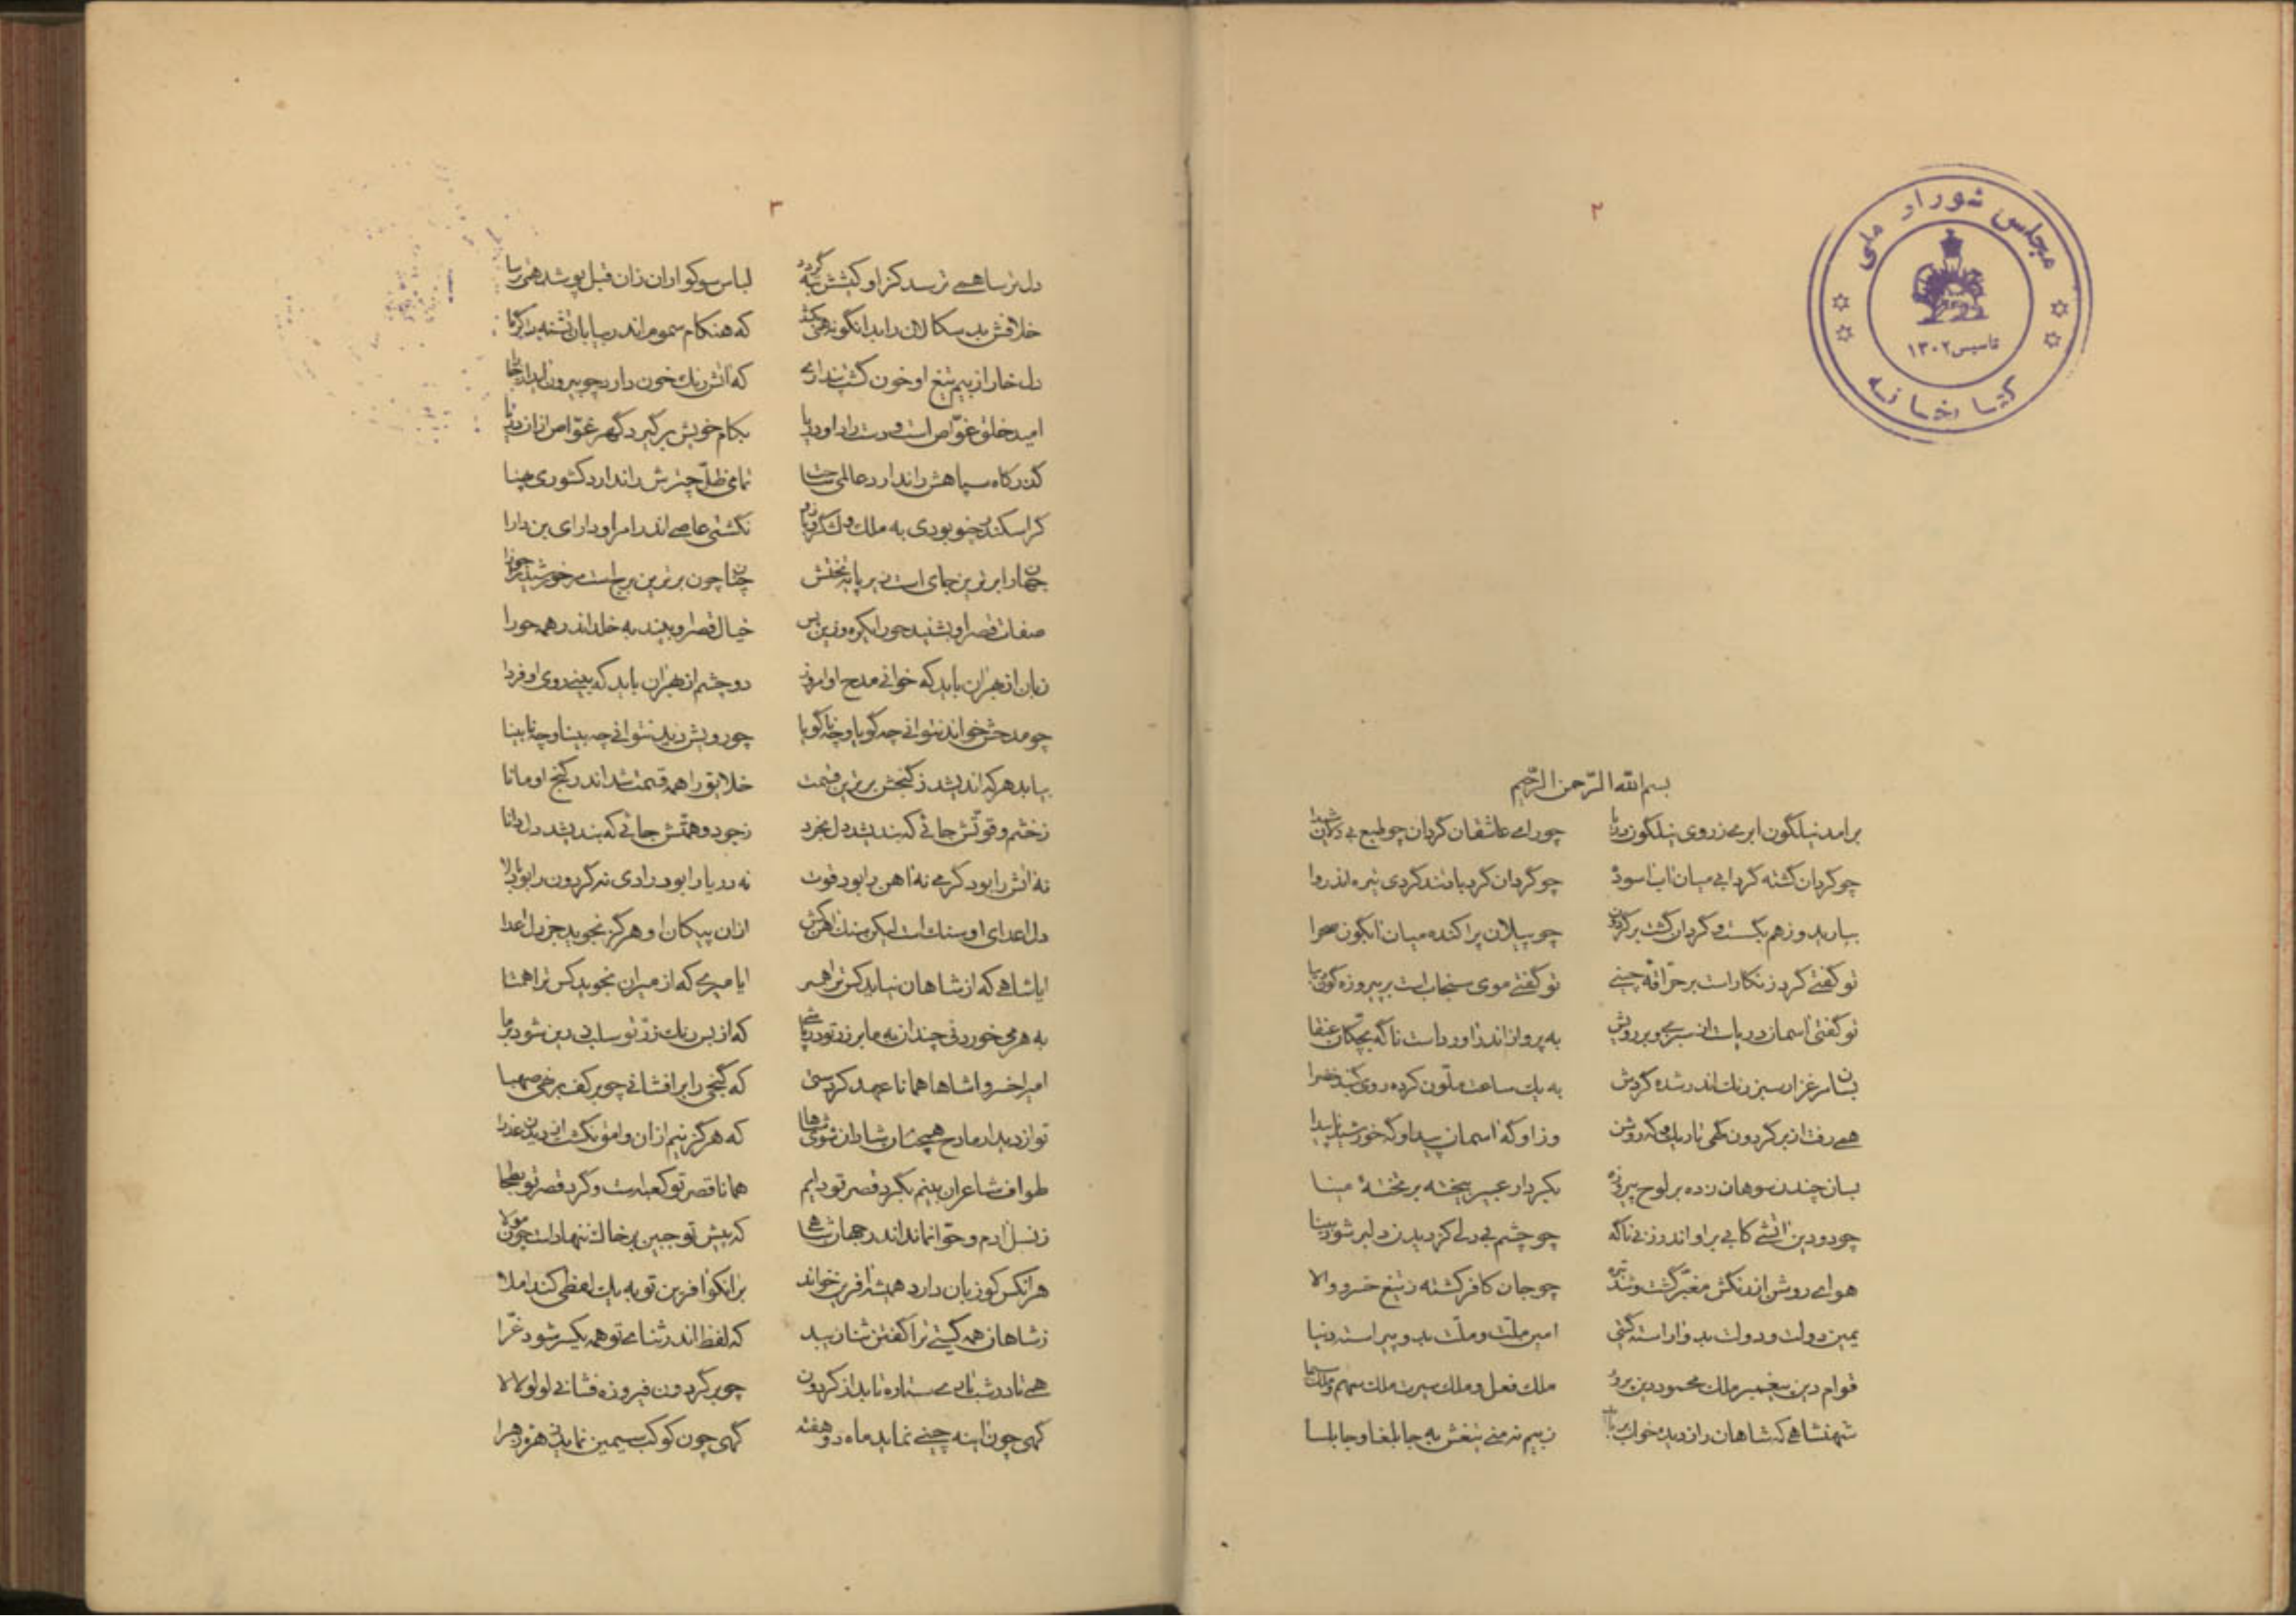 مجلس شورای ملی
تاسیس ۱۳۰۲
کتابخانه
۲
بسم الله الرّحمن الرّحیم
برامد نیلگون ابری ز روی نیلگون دریا چو رای عاشقان گردان چو طبع بی دلان شیدا
چو گردان گشته گردابی میان آب اسوده چو گردان گردباد تند گردی تیره اندروا
ببارید و ز هم بگسست و گردان گشت بر گردون چو پیلان پراکنده میان آبگون صحرا
تو گفتی گرد زنگار است بر حرّاقه چینی تو گفتی موی سنجاب است بر پیروزه گون دیبا
تو گفتی آسمان دریاست از سبزی و بر رویش به پرواز اندر اورداست ناگه بچکان عنقا
بسان مرغزار سبز رنگ اندر شده گردش به یک ساعت ملوّن کرده روی گنبد خضرا
همی رفت از بر گردون گهی تاریک و گه روشن وزاو گه آسمان پیدا و گه خورشید ناپیدا
بسان چندن سوهان زده بر لوح پیروزه بکردار عبیر بیخته بر تختهٔ مینا
چو دودین آتشی کابی بر او اندر زنی ناگه چو چشم بی دلی کز دیدن دلبر شود بینا
هوای روشن از رنگش مغبّر گشت و شد تیره چو جان کافر کشته ز تیغ خسرو والا
یمین دولت و دولت بدو آراسته گیتی امین ملّت و ملّت بدو پیراسته دنیا
قوام دین پیغمبر ملک محمود دین پرور ملک فعل و ملک سیرت ملک سهم و ملک سیما
شهنشاهی که شاهان را ز دیده خواب برباید ز بیم نه منی تیغش به جابلقا و جابلسا
۳
دل ترسا همی ترسد کز او کیشش تبه گردد لباس سوکواران زان قبل پوشد همی ترسا
خلافش بد سکالان را بدانگونه همی بکشد که هنکام سموم اندر بیابان تشنه را گرما
دل خار از بیم تیغ او خون گشت پنداری که آتش رنگ خون دارد چو بیرون آید از خارا
امید خلق غوّاص است و دست راد او دریا بکام خویش برگیرد گهر غوّاص از ان دریا
گذرگاه سپاهش را ندارد عالمی ساحت تمامی ظلّ چترش را ندارد کشوری پهنا
گر اسکندر چنو بودی به ملک و لشکر و بازو نگشتی عاصی اندر امر او دارای بن دارا
جهان را برترین جای است زیر پایه تختش چنان چون برترین برج است مر خورشید را جوزا
صفات قصر او بشنید حورا یکره و زین پس خیال قصر او بیند به خلد اندر همه حورا
زبان از بهر ان باید که خوانی مدح او امروز دو چشم از بهر ان باید که بینی روی او فردا
چو مدحش خواند نتوانی چه گویا و چه ناگویا چو رویش دید نتوانی چه بینا و چه نابینا
بیابد هر که اندیشد ز گنجش برترین قسمت خلایق را همه قسمت شد اندر گنج او مانا
ز خشم و قوّتش جائی که بندیشد دل بخرد ز جود و همّتش جائی که بندیشد دل دانا
نه آتش را بود گرمی نه آهن را بود قوت نه دریا را بود رادی نه گردون را بود بالا
دل اعدای او سنگ است لیکن سنگ آهن کش از ان پیکان او هرگز نجوید جز دل اعدا
ایا شاهی که از شاهان نیاید کس ترا همسر ایا میری که از میران نجوید کس ترا همتا
به هر می خوردنی چندان به ما بر زر تو درپاشی که از بس رنگ زرّ تو سلب زرین شود بر ما
امیرا خسروا شاها همانا عهد کردستی که گنجی را برافشانی چو بر کف برنهی صهبا
تو از دیدار مادح همچنان شادان شوی شاها که هرگز نیم از ان وامق نگشت از دیدن عذرا
طواف شاعران بینم بگرد قصر تو دایم همانا قصر تو کعبه است و گرد قصر تو بطحا
ز نسل آدم و حوّا نماند اندر جهان شاهی که پیش تو جبین بر خاک ننهاد است چون مولا
هر انکس کو زبان دارد همیشه آفرین خواند بر انکو آفرین تو به یک لفظی کند املا
ز شاهان همه گیتی ترا گفتن ثنا زیبد که لفظ اندر ثنای تو همه یکسر شود غرّا
همی تا در شب تاری ستاره تابد از گردون چو بر گردون فیروزه فشانی لولو لالا
گهی چون آینه چینی نماید ماه دو هفته گهی چون کوکب سیمین نماید زهره زهرا